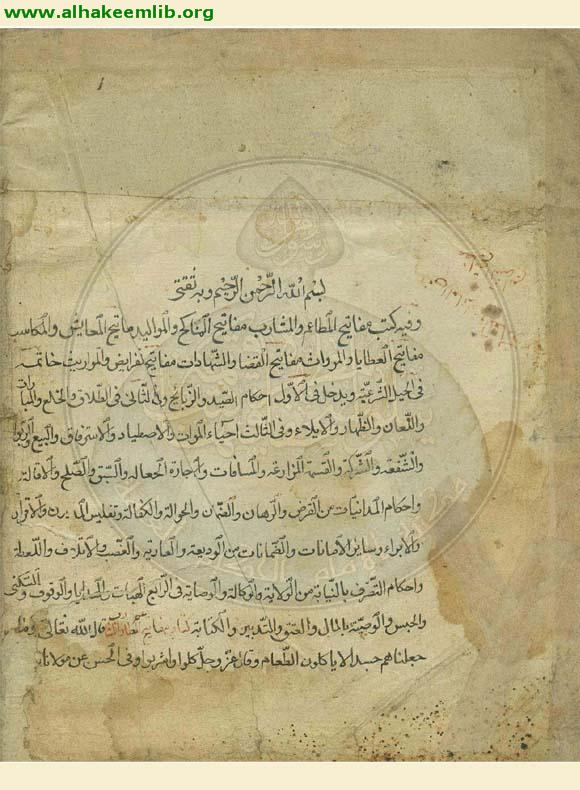 www.alhakeemlib.org
بسم الله الرحمن الرحيم وبه ثقتي
وفيه كتب مفاتيح المطاعم والمشارب مفاتيح المناكح والمواليد مفاتيح المعايش والمكاسب
مفاتيح العطايا والمروات مفاتيح القضا والشهادات مفاتيح الفرايض والمواريث خاتمه
في الحيل الشرعية ويدخل في الاول احكام الصيد والذبائح وفي الثاني في الطلاق والخلع والمبارات
واللعان والظهار والايلاء وفي الثالث احياء الموات والاصطياد والاسترقاق والبيع والربوا
والشفعة والشركة والقسمة المزارعه والمساقات والاجارة الجعاله والسبق والصلح والاقالة
واحكام المداينات من القرض والرهان والضمان والحوالة والكفالة وتفليس المديون والاقرار
والابراء وساير الامانات والضمانات من الوديعة والعارية والغصب والاتلاف واللقطة
واحكام التصرف بالنيابة من الولاية والوكالة والوصاية في الرابع الهبات والهدايا والوقوف والسكنى
والحبس والوصية بالمال والعتق والتدبير والكتابة قال الله تعالى وما
جعلناهم جسدا لا ياكلون الطعام وقال عز وجل كلوا واشربوا وفي الحسن عن مولانا